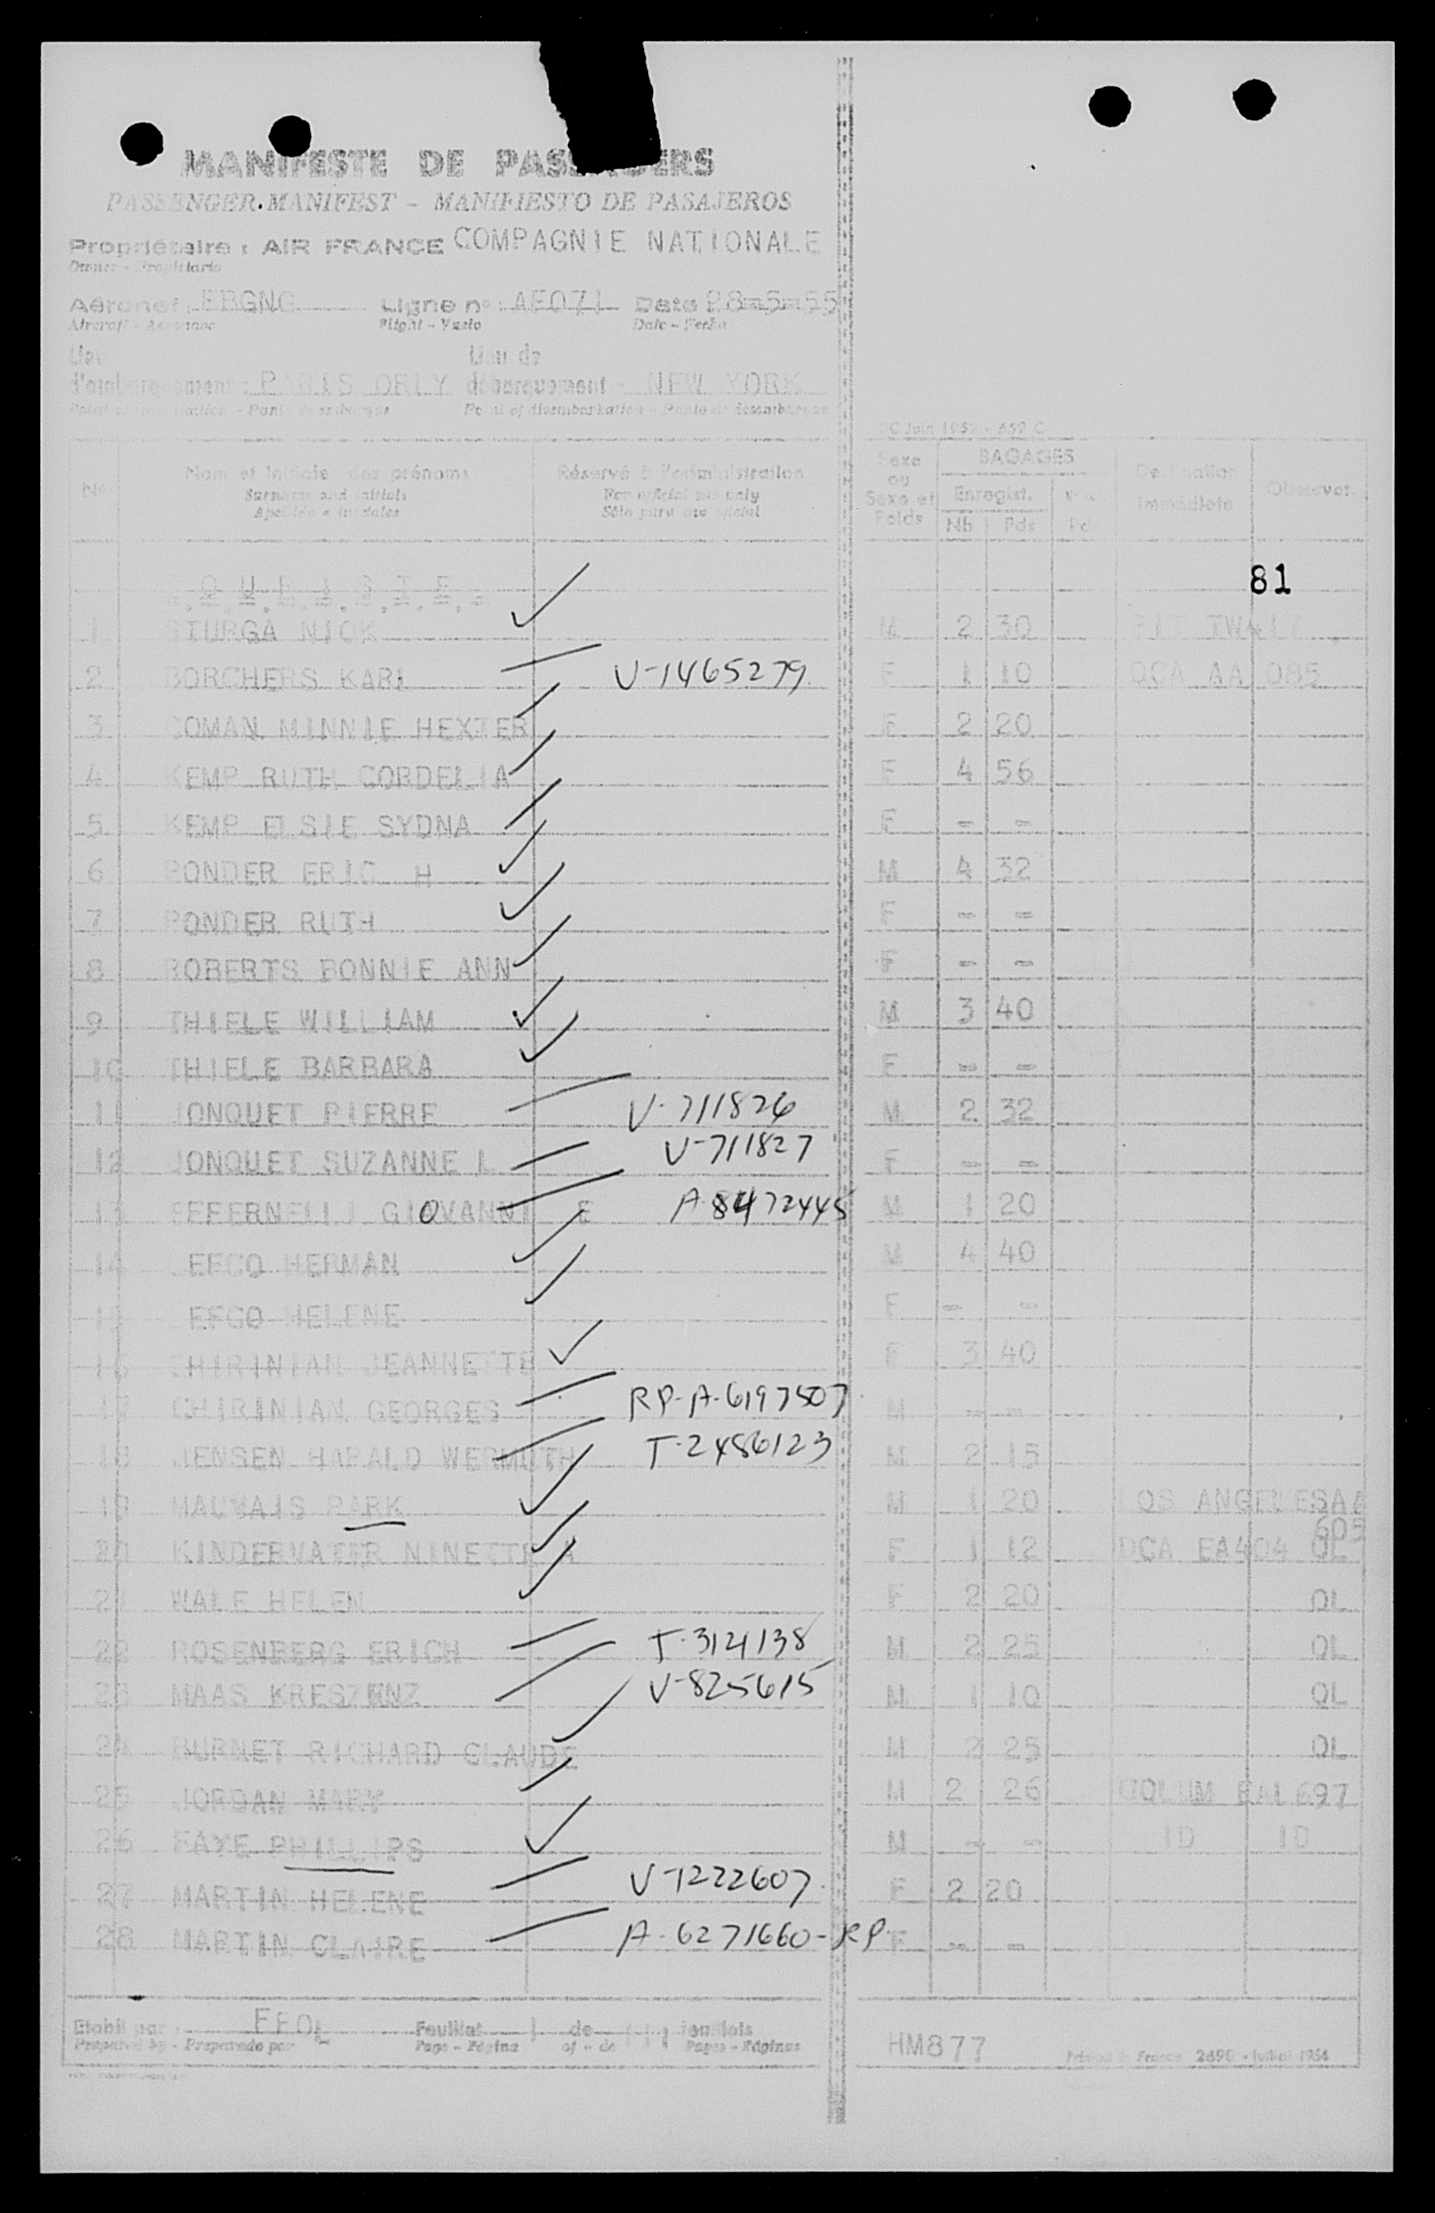 MANIFESTE DE PASS ERS
PASSENGER MANIFEST - MANIFIESTO DE PASAJEROS
Propriétaire : AIR FRANCE COMPAGNIE NATIONALE
Owner - Propietario
Aéronef : FBGNG Ligne n° : AF071 Date 28-5-55
Aircraft - Aeronave Flight - Vuelo Date - Fecha
Lieu Lieu de
d'embarquement : PARIS ORLY débarquement : NEW YORK
Point of disembarkation
Juin 195
Sexe ou Sexe et Poids BAGAGES Destination Immédiate Observat.
Nom et initiale des prénoms Réservé à l'administration Enregist.
Surname and initials For official use only
Apellido e iniciales Sólo para uso oficial Nb Pds
81
1 STURGA NICK M 2 30 PIT TWA
2 BORCHERS KARI V-1465279 F 1 10 DCA AA 085
3 COMAN MINNIE HEXTER F 2 20
4 KEMP RUTH CORDELIA F 4 56
5 KEMP ELSIE SYDNA F - -
6 PONDER ERIC H M 4 32
7 PONDER RUTH F - -
8 ROBERTS BONNIE ANN F - -
9 THIELE WILLIAM M 3 40
10 THIELE BARBARA F - -
11 JONQUET PIERRE V-711826 M 2 32
12 JONQUET SUZANNE L V-711827 F - -
13 GIOVANNI E A-8472445 M 1 20
14 LEFCO HERMAN M 4 40
15 LEFCO HELENE F - -
16 CHIRINIAN JEANNETTE F 3 40
17 CHIRINIAN GEORGES RP-A-6197507 M - -
18 JENSEN HARALD WERMUTH T-2486123 M 2 15
19 MAUVAIS PARK M 1 20 LOS ANGELES AA
605
20 KINDERVATER NINETTE A F 1 12 DCA EA404 OL
21 WALE HELEN F 2 20 OL
22 ROSENBERG ERICH T-3121138 M 2 25 OL
23 MAAS KRESZENZ V-825615 M 1 10 OL
24 BURNET RICHARD CLAUDE M 2 25 OL
25 JORDAN MARY M 2 26 COLUM EAL 697
26 FAYE PHILLIPS M - - ID ID
27 MARTIN HELENE V-1222607 F 2 20
28 MARTIN CLAIRE A-6271660-RP F - -
Etabli par : Feuillet 1 de feuillets HM877
Prepared by - Preparado por Page - Página of - de Pages - Páginas Printed in France 2690 - juillet 1954